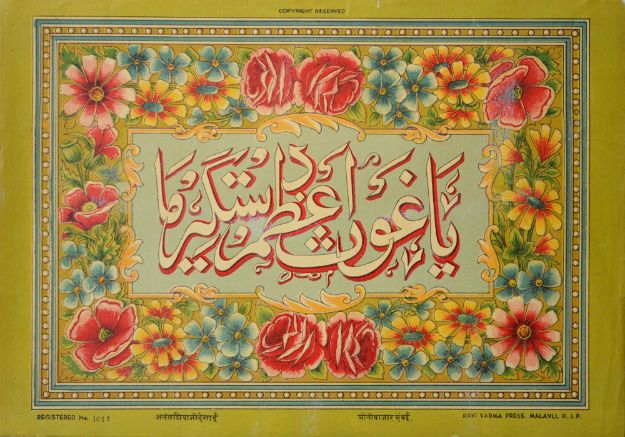 COPYRIGHT RESERVED
یا غوث اعظم دستگیر ما
REGISTERED No. 1027 अनंतशिवाजीदेसाई मोतीबाजार मुंबई. RAVI VARMA PRESS, MALAVLI, G. I. P.